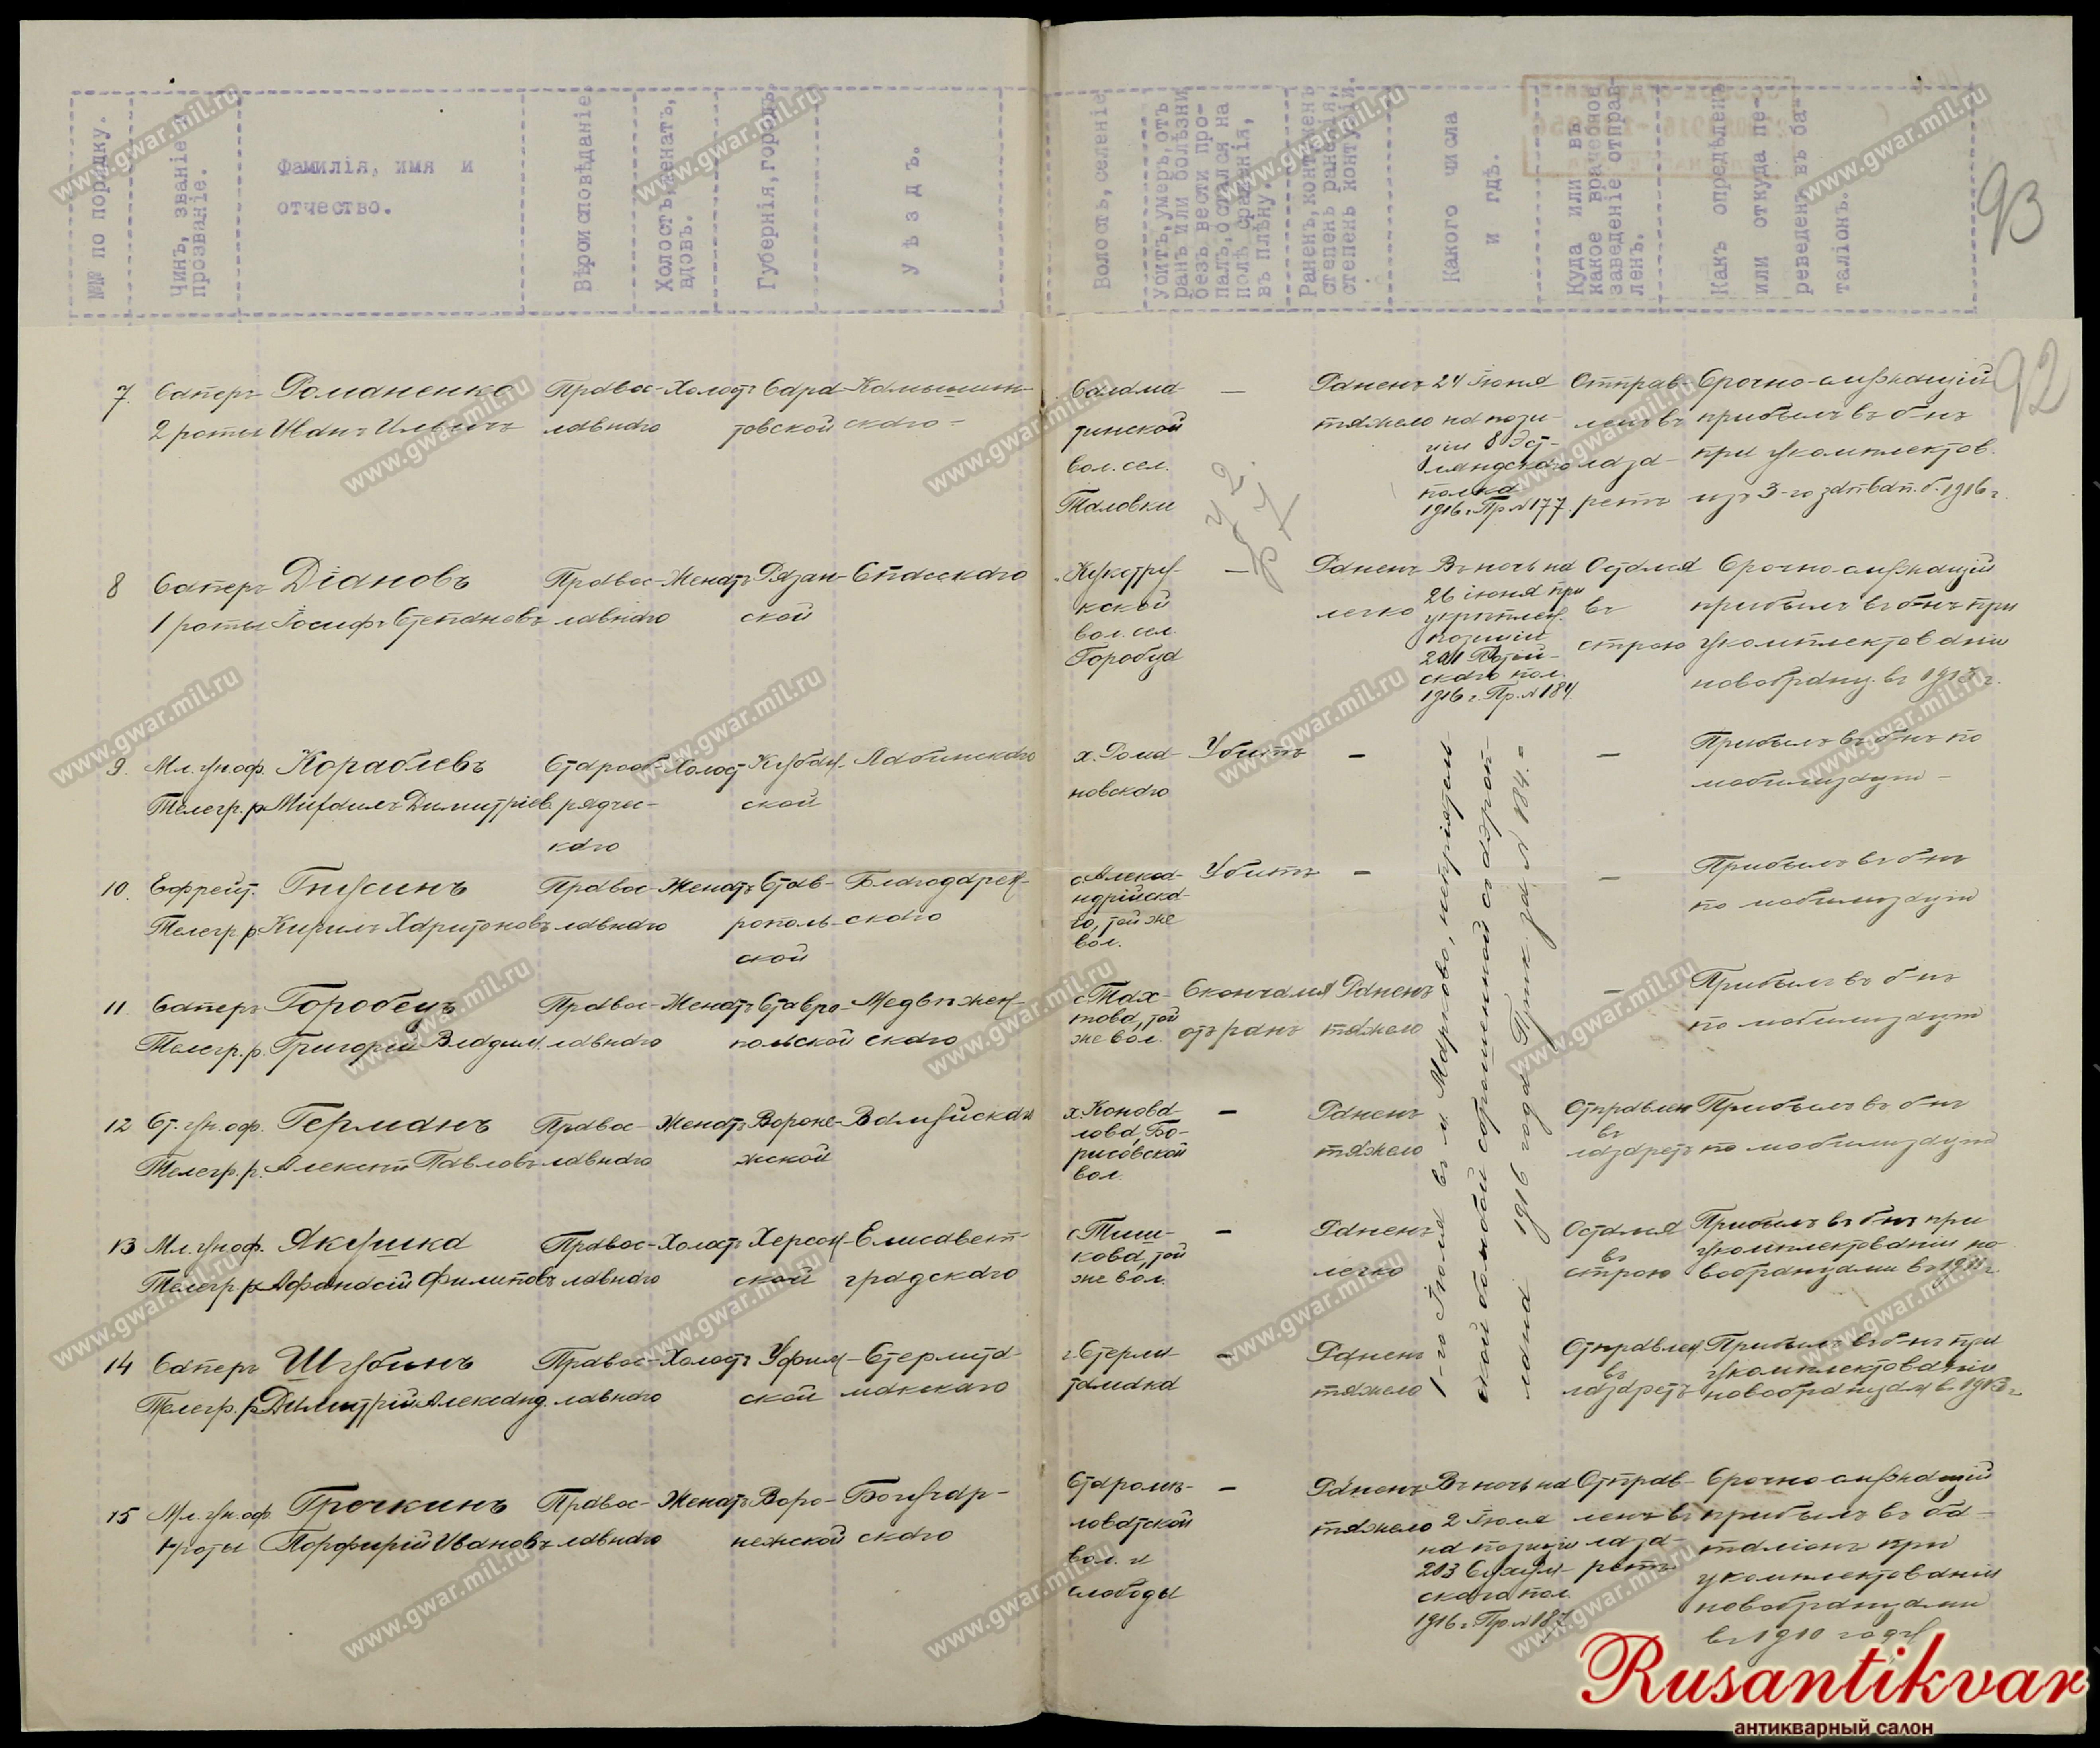 №№ по порядку.
Чинъ, званіе и
прозваніе.
Фамилія, имя и
отчество.
Вѣроисповѣданіе.
Холостъ, женатъ,
вдовъ.
Губернія, городъ.
Уѣздъ.
Волость, селеніе
Убитъ, умеръ, отъ
ранъ или болѣзни
безъ вести про-
палъ, остался на
полѣ сраженія,
въ плѣну.
Раненъ, контуженъ
степень раненія,
степень контузія.
Какого числа
и гдѣ.
Куда или въ
какое врачебное
заведеніе отправ-
ленъ.
Какъ опредѣленъ
или откуда пе-
реведенъ въ ба-
таліонъ.
93
92
7. Саперъ Романенко Правос- Холостъ Сара- Камышин-
2 роты Иванъ Ильичъ лавнаго товской скаго
Салама-
тинской
вол. сел.
Таловки
—
Раненъ
тяжело
24 Іюня
на пози-
ціи 8 Эст-
ляндского
полка
1916 г. Пр. № 177
Отправ-
ленъ въ
лаза-
ретъ
Срочно-служащій
прибылъ въ б-нъ
при укомплектов.
изъ 3-го зап. Сап. б. 1916 г.
8 Саперъ Діановъ Правос- Женатъ Рязан- Спасскаго
1 роты Іосифъ Степановъ лавнаго ской
вол. сел.
—
Раненъ
легко
Въ ночь на
26 іюня при
укрѣплен.
позиціи
ского пол.
1916 г. Пр. № 184
Остался
въ
строю
Срочно-служащій
прибылъ въ б-нъ при
укомплектованіи
новобранц. въ 1913 г.
9. Мл. ун. оф. Кораблевъ Старооб- Холост Кубан- Лабинскаго
Телегр. р. Михаилъ Димитріев рядчес- ской
каго
х. Рома-
новскаго
Убитъ
—
—
Прибылъ въ б-нъ по
мобилизаціи
10. Ефрейт. Гнусинъ Правос- Женатъ Став- Благодарен-
Телегр. р. Кирилъ Харитоновъ лавнаго рополь- скаго
ской
с. Алекса-
ндрійска-
го, той же
вол.
Убитъ
—
—
Прибылъ въ б-нъ
по мобилизаціи
11. Саперъ Горобецъ Правос- Женатъ Ставро- Медвѣжен-
Телегр. р. Григорій Владим. лавнаго польской скаго
с. Тах-
това, той
же вол.
Скончался
отъ ранъ
Раненъ
тяжело
—
Прибылъ въ б-нъ
по мобилизаціи
12 Ст. ун. оф. Германъ Правос- Женатъ Вороне- Валуйскаго
Телегр. р. Алексѣй Павловъ лавнаго жской
х. Конова-
лова, Бо-
рисовской
вол.
—
Раненъ
тяжело
Отправлен
въ
лазаретъ
Прибылъ въ б-нъ
по мобилизаціи
13 Мл. ун. оф. Якушка Правос- Холостъ Херсон- Елисавет-
Телегр. р. Афанасій Филиповъ лавнаго ской градскаго
с. Тиш-
кова, той
же вол.
—
Раненъ
легко
Остался
въ
строю
Прибылъ въ б-нъ при
укомплектованіи но-
вобранцами въ 1911 г.
14 Саперъ Шубинъ Правос- Холостъ Уфим- Стерлита-
Телегр. р. Димитрій Александ. лавнаго ской макскаго
г. Стерли-
тамака
—
Раненъ
тяжело
Отправлен
въ
лазаретъ
Прибылъ въ б-нъ при
укомплектованіи
новобранцам въ 1913 г.
1-го Іюля въ м. Марково, непріятель-
ской бомбой сброшенной съ аэроп-
лана 1916 года Прик. за № 184.
15 Мл. ун. оф. Грочкинъ Правос- Женатъ Воро- Богучар-
роты Порфирій Ивановъ лавнаго нежской скаго
Старомѣ-
ловатской
вол. и
слободы
—
Раненъ
тяжело
Въ ночь на
2 Іюля
на позиціи
203 Сухум-
скаго пол.
1916 г. Пр. № 187
Отправ-
ленъ въ
лаза-
ретъ
Срочно-служащій
прибылъ въ ба-
таліонъ при
укомплектованіи
новобранцами
въ 1910 году
www.gwar.mil.ru
Rusantikvar
антикварный салон